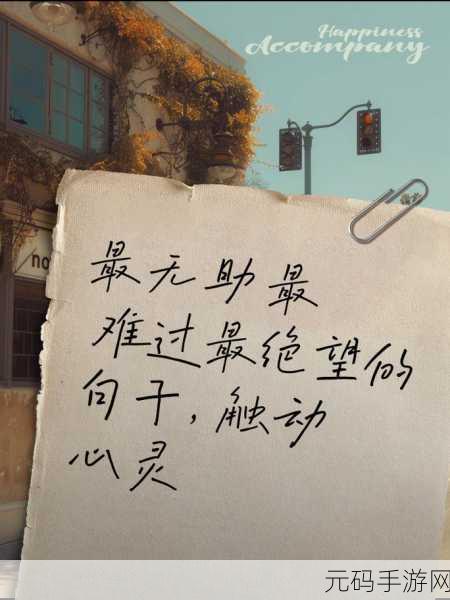 Happiness
Accompany
/no
最无助最
难过最绝望的
句子，触动
心灵
元码手游网